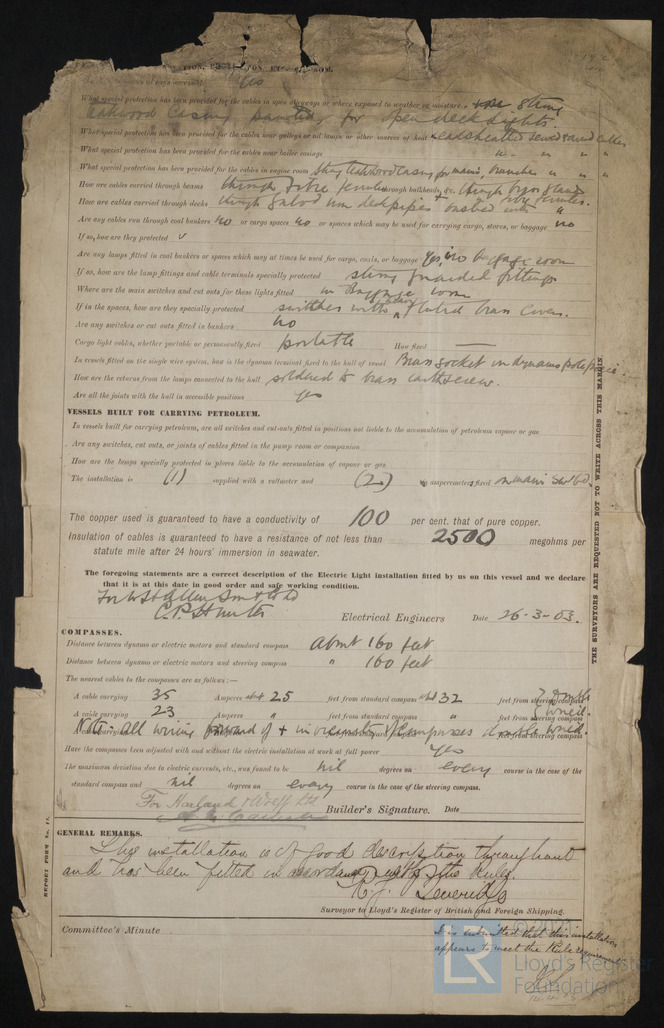 Yes
What special protection has been provided for the cables in open alleyways or where exposed to weather or moisture strong
teakwood casing painted, for open deck lights.
What special protection has been provided for the cables near galleys or oil lamps or other sources of heat leadsheathed armoured cables
What special protection has been provided for the cables near boiler casings " " "
What special protection has been provided for the cables in engine room strong teakwood casing for mains, branches " " "
How are cables carried through beams through fibre ferrules through bulkheads, &c. through brass glands
How are cables carried through decks through galvd iron deckpipes + bushed with fibre ferrules.
Are any cables run through coal bunkers no or cargo spaces no or spaces which may be used for carrying cargo, stores, or baggage no
If so, how are they protected ✓
Are any lamps fitted in coal bunkers or spaces which may at times be used for cargo, coals, or baggage Yes, in baggage room
If so, how are the lamp fittings and cable terminals specially protected strong guarded fittings
Where are the main switches and cut outs for these lights fitted in Baggage room
If in the spaces, how are they specially protected switches with locked brass covers.
Are any switches or cut outs fitted in bunkers no
Cargo light cables, whether portable or permanently fixed portable How fixed —
In vessels fitted on the single wire system, how is the dynamo terminal fixed to the hull of vessel Brass socket in dynamo pole piece.
How are the returns from the lamps connected to the hull soldered to brass earthscrew.
Are all the joints with the hull in accessible positions Yes
VESSELS BUILT FOR CARRYING PETROLEUM.
In vessels built for carrying petroleum, are all switches and cut-outs fitted in positions not liable to the accumulation of petroleum vapour or gas
Are any switches, cut outs, or joints of cables fitted in the pump room or companion
How are the lamps specially protected in places liable to the accumulation of vapour or gas
The installation is (1) supplied with a voltmeter and (2) amperemeters fixed on main Swbd.
The copper used is guaranteed to have a conductivity of 100 per cent. that of pure copper.
Insulation of cables is guaranteed to have a resistance of not less than 2500 megohms per
statute mile after 24 hours' immersion in seawater.
The foregoing statements are a correct description of the Electric Light installation fitted by us on this vessel and we declare
that it is at this date in good order and safe working condition.
For W H Allen Son & Co Ld
Electrical Engineers Date 26-3-03.
COMPASSES.
Distance between dynamo or electric motors and standard compass About 160 feet
Distance between dynamo or electric motors and steering compass " 160 feet
The nearest cables to the compasses are as follows:—
A cable carrying 35 Amperes abt 25 feet from standard compass abt 32 feet from steering compass
A cable carrying 23 Amperes " feet from standard compass " feet from steering compass
Note- all wiring forward of + in vicinity of Compasses double wired.
Have the compasses been adjusted with and without the electric installation at work at full power Yes
The maximum deviation due to electric currents, etc., was found to be nil degrees on every course in the case of the
standard compass and nil degrees on every course in the case of the steering compass.
For Harland & Wolff Ltd
Builder's Signature. Date
GENERAL REMARKS.
This installation is of good description throughout
and has been fitted in accordance with the Rules.
Surveyor to Lloyd's Register of British and Foreign Shipping.
Committee's Minute
It is submitted that this installation
appears to meet the Rule requirements
THE SURVEYORS ARE REQUESTED NOT TO WRITE ACROSS THIS MARGIN.
REPORT FORM No. 11.
LR
© 2021
Lloyd's Register
Foundation